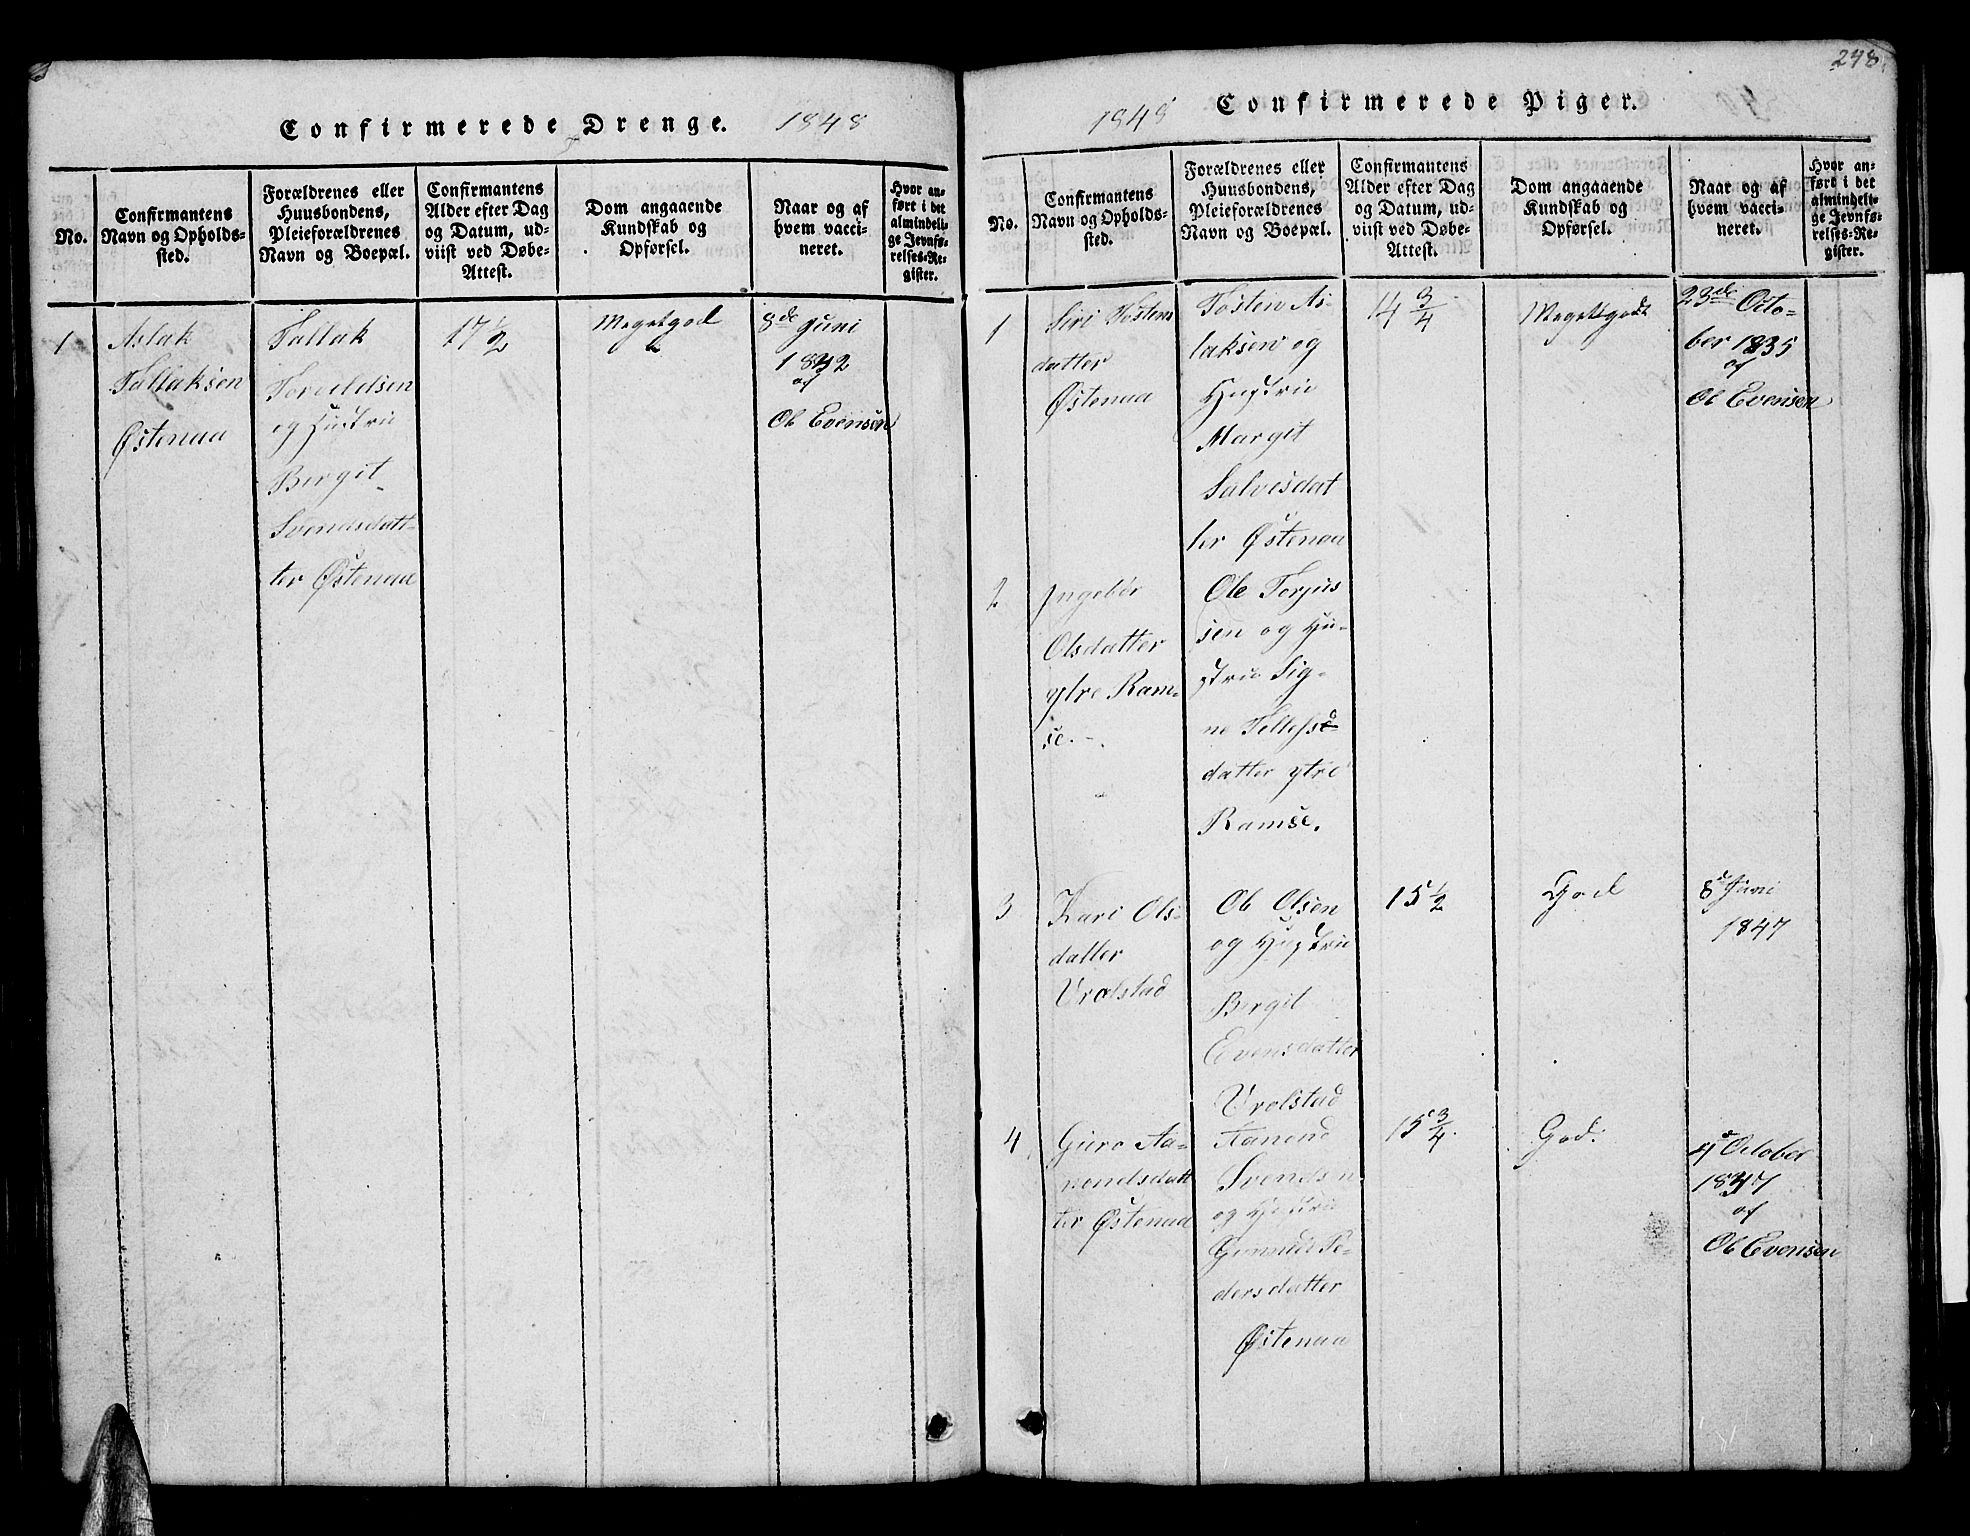 Confirmerede Drenge. 1848
No.
Confirmantens
Navn og Opholds-
sted.
Forældrenes eller
Huusbondens,
Pleieforældrenes
Navn og Boepæl.
Confirmantens
Alder efter Dag
og Datum, ud-
viist ved Døbe-
Attest.
Dom angaaende
Kundskab og
Opførsel.
Naar og af
hvem vacci-
neret.
Hvor an-
ført i det
almindeli-
ge Jevnfø-
relses-Re-
gister.
1
Aslak
Tallaksen
Østenaa
Tallak
Toreldsen
og Hustrue
Bergit
Svendsdatt-
ter Østenaa
17 1/2
Megetgod
8de Juni
1832
af
Ol Evensen
248.
1848 Confirmerede Piger.
No.
Confirmantens
Navn og Opholds-
sted.
Forældrenes eller
Huusbondens,
Pleieforældrenes
Navn og Boepæl.
Confirmantens
Alder efter Dag
og Datum, ud-
viist ved Døbe-
Attest.
Dom angaaende
Kundskab og
Opførsel.
Naar og af
hvem vacci-
neret.
Hvor an-
ført i det
almindeli-
ge Jevnfø-
relses-Re-
gister.
1
Siri Tostens
datter
Østenaa
Tostin As-
laksen og
Hustrue
Margit
Salvesdat
ter Østenaa
14 3/4
Megettgodt
23de Octo-
ber 1835
af
Ol Evensen
2
Ingebór
Olsdatter
ytre Ram-
se.-
Ole Torjus
sen og Hu-
strue Sig-
ne Tellefs
datter ytre
Ramse.
3
Kari Ols-
datter
Vrolstad
Ole Olsen
og Hustrue
Bergit
Evensdatter
Vrolstad
15 1/2
God
8d Juni
1847
4
Guro Aa-
nondsdatt
ter Østenaa
Aanend
Svendsen
og Hustrue
Gunnild Pe-
dersdatter
Østenaa
15 3/4.
God.
4d October
1837
af
Ol Evensen